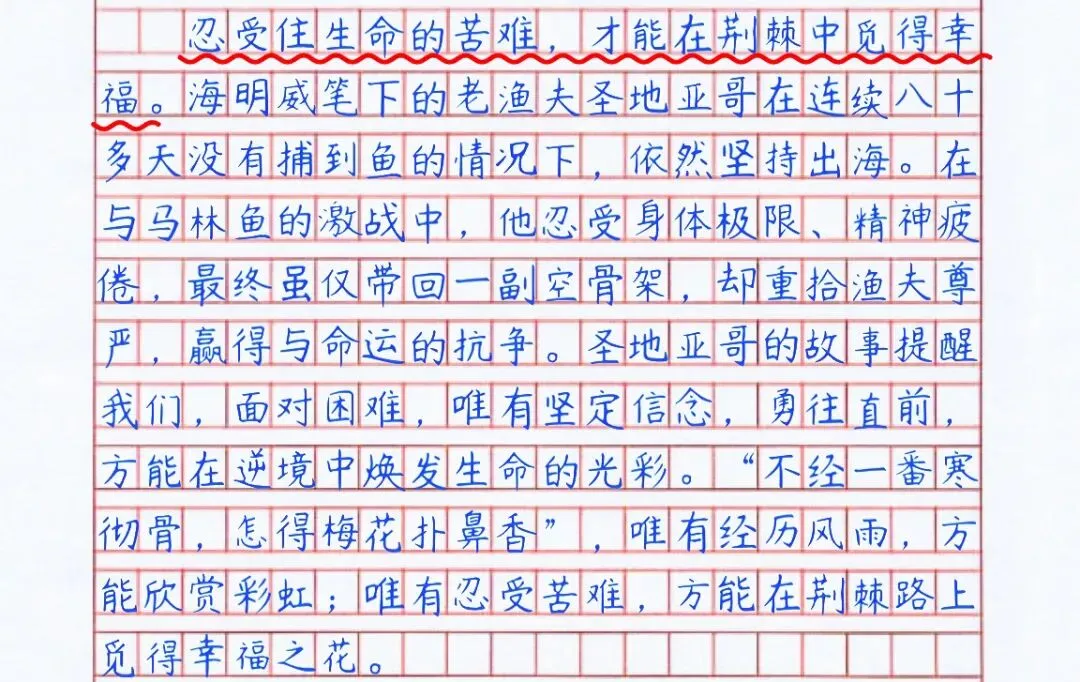 忍受住生命的苦难，才能在荆棘中觅得幸
福。海明威笔下的老渔夫圣地亚哥在连续八十
多天没有捕到鱼的情况下，依然坚持出海。在
与马林鱼的激战中，他忍受身体极限、精神疲
倦，最终虽仅带回一副空骨架，却重拾渔夫尊
严，赢得与命运的抗争。圣地亚哥的故事提醒
我们，面对困难，唯有坚定信念，勇往直前，
方能在逆境中焕发生命的光彩。“不经一番寒
彻骨，怎得梅花扑鼻香”，唯有经历风雨，方
能欣赏彩虹；唯有忍受苦难，方能在荆棘路上
觅得幸福之花。